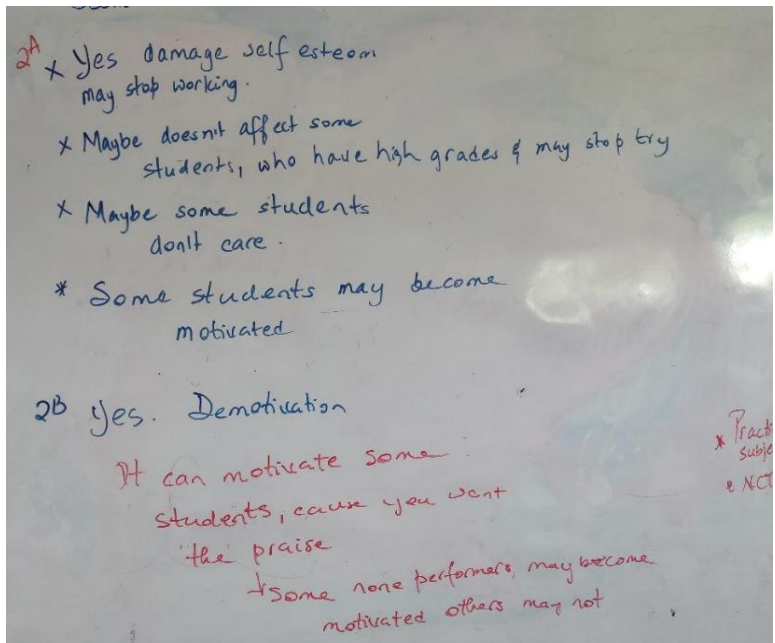 2A x Yes damage self esteem
may stop working.
x Maybe doesn't affect some
students, who have high grades & may stop try
x Maybe some students
don't care.
* Some students may become
motivated
2B Yes. Demotivation
It can motivate some
students, cause you want
the praise
+ some none performers, may become
motivated others may not
* Practi
subje
* NCT